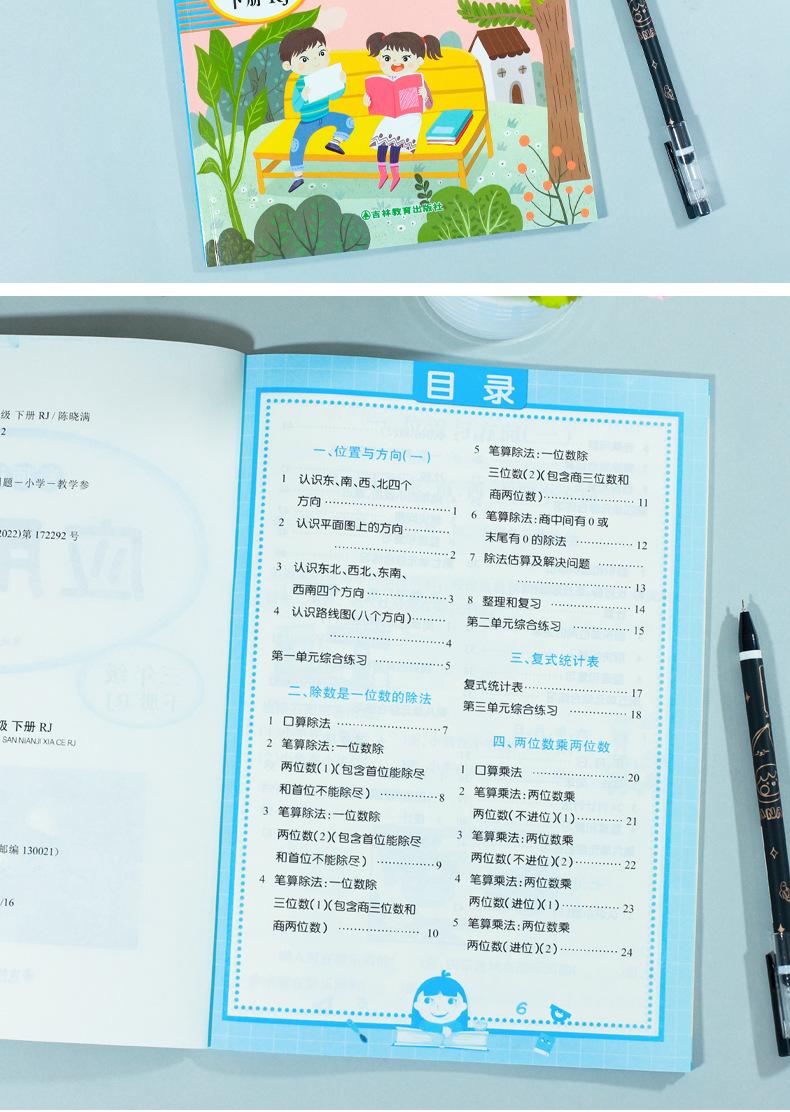 下册 RJ
吉林教育出版社
级 下册 RJ / 陈晓满
2
题－小学－教学参
2022)第 172292 号
三年级
下册 RJ
级 下册 RJ
SAN NIANJI XIA CE RJ
邮编 130021）
/16
目 录
一、位置与方向(一)
1 认识东、南、西、北四个
方向 ………………………1
2 认识平面图上的方向…………
………………………2
3 认识东北、西北、东南、
西南四个方向………………3
4 认识路线图(八个方向)………
………………………4
第一单元综合练习 ……………5
二、除数是一位数的除法
1 口算除法 …………………7
2 笔算除法:一位数除
两位数(1)(包含首位能除尽
和首位不能除尽) …………8
3 笔算除法:一位数除
两位数(2)(包含首位能除尽
和首位不能除尽) …………9
4 笔算除法:一位数除
三位数(1)(包含商三位数和
商两位数) ………………10
5 笔算除法:一位数除
三位数(2)(包含商三位数和
商两位数)…………………11
6 笔算除法:商中间有 0 或
末尾有 0 的除法 …………12
7 除法估算及解决问题 ………
………………………13
8 整理和复习 ………………14
第二单元综合练习 …………15
三、复式统计表
复式统计表……………………17
第三单元综合练习 …………18
四、两位数乘两位数
1 口算乘法 …………………20
2 笔算乘法:两位数乘
两位数(不进位)(1)…………21
3 笔算乘法:两位数乘
两位数(不进位)(2)…………22
4 笔算乘法:两位数乘
两位数(进位)(1)……………23
5 笔算乘法:两位数乘
两位数(进位)(2)……………24
6